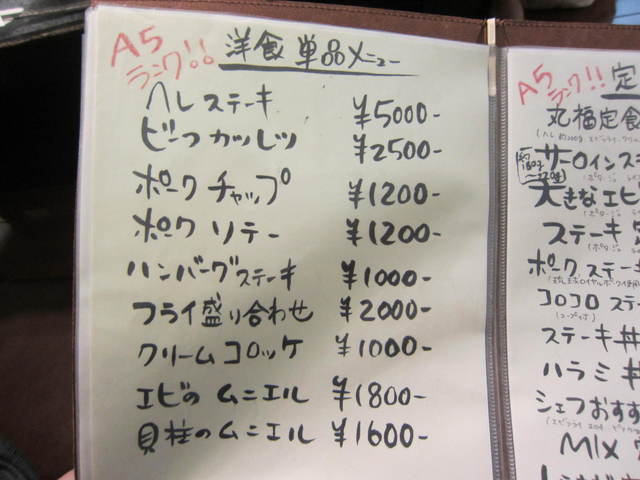 A5
ランク!!
洋食単品メニュー
ヘレステーキ ¥5000-
ビーフカツレツ ¥2500-
ポークチャップ ¥1200-
ポークソテー ¥1200-
ハンバーグステーキ ¥1000-
フライ盛り合わせ ¥2000-
クリームコロッケ ¥1000-
エビのムニエル ¥1800-
貝柱のムニエル ¥1600-
A5
ランク!!
定
丸福定食
サーロインス
大きなエビ
ステーキ
ポークステーキ
コロコロステ
ステーキ丼
ハラミ丼
シェフおすす
MIX